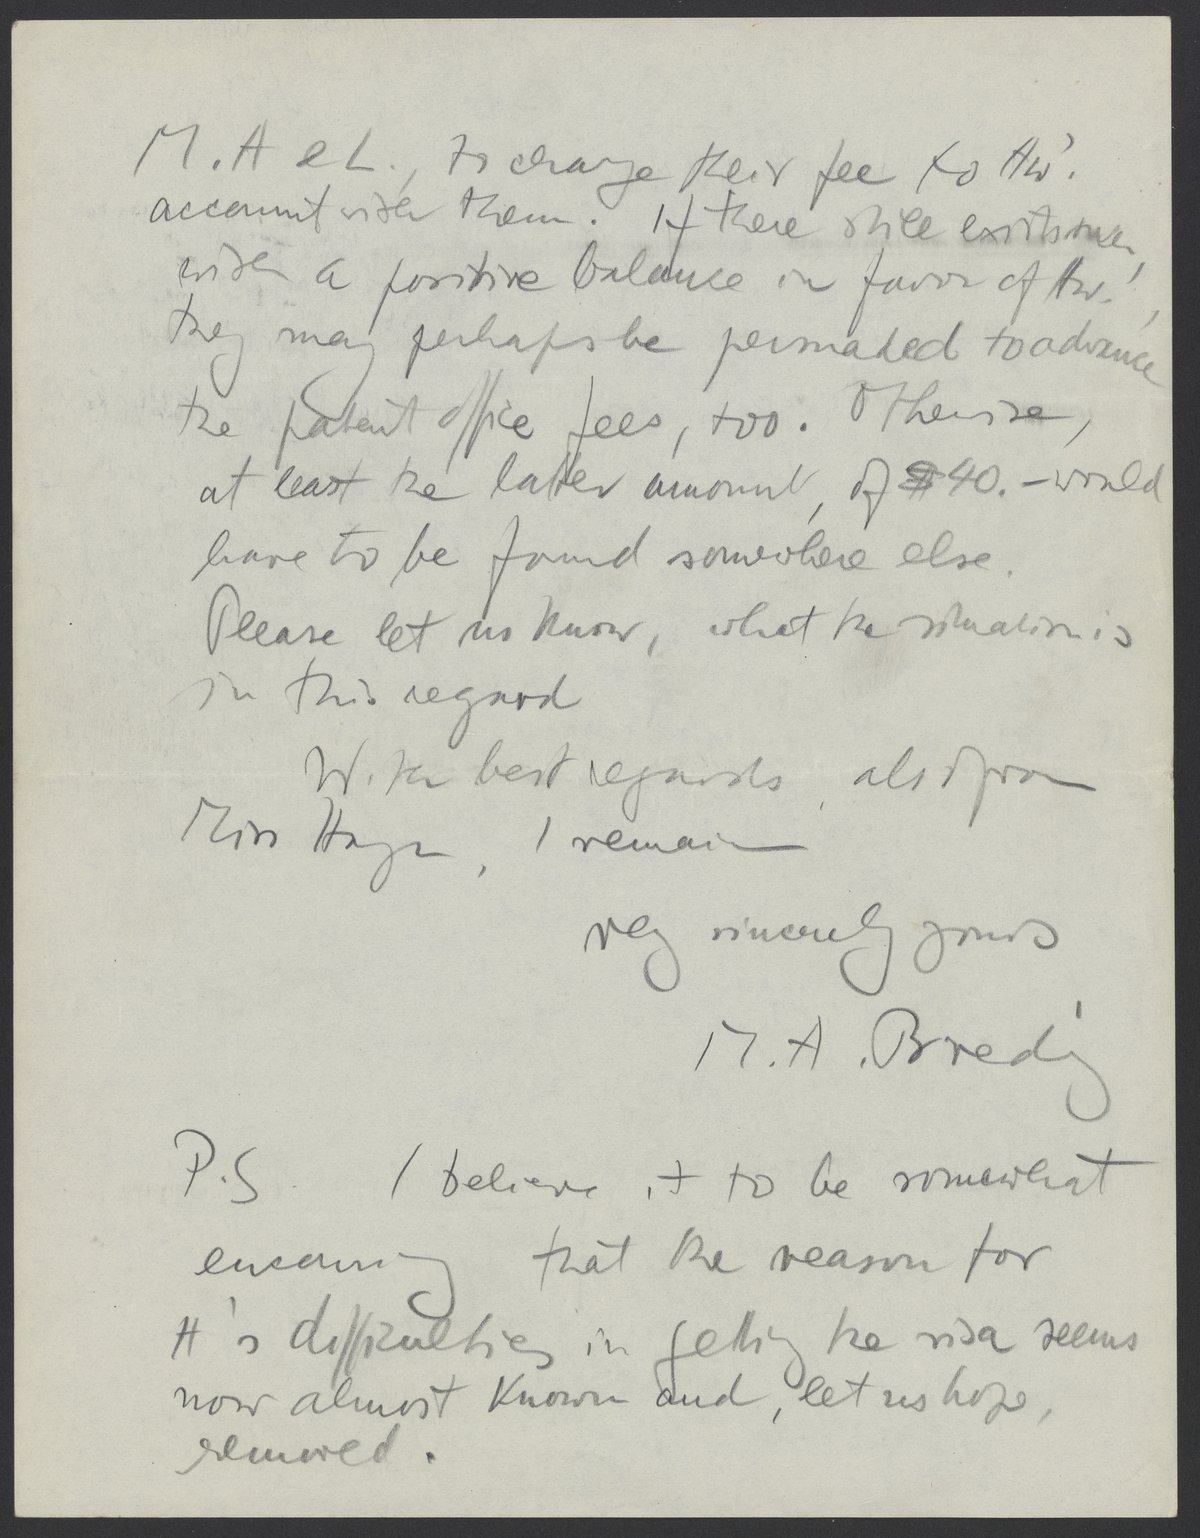 M. A & L., to charge their fee to Aw'.
account with them. If there still exists one,
with a positive balance in favor of Aw.',
they may perhaps be persuaded to advance
the patent office fees, too. Otherwise,
at least the latter amount, of $40.- would
have to be found somewhere else.
Please let us know, what the situation is
in this regard
With best regards, also from
Miss, I remain
very sincerely yours
M. A. Bredig
P.S. I believe it to be somewhat
encouraging that the reason for
H's difficulties in getting the visa seems
now almost known and, let us hope,
removed.